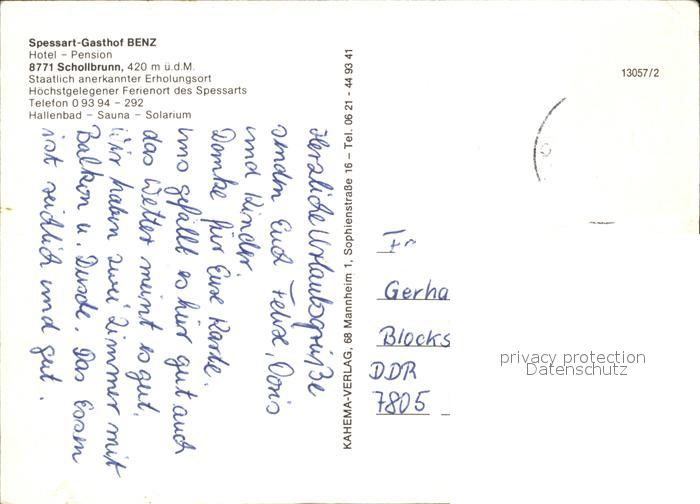 Spessart-Gasthof BENZ
Hotel – Pension
8771 Schollbrunn, 420 m ü.d.M.
Staatlich anerkannter Erholungsort
Höchstgelegener Ferienort des Spessarts
Telefon 0 93 94 – 292
Hallenbad – Sauna – Solarium
Herzliche Urlaubsgrüße
senden Euch Felix, Doris
und Kinder.
Danke für Eure Karte.
Uns gefällt es hier gut auch
das Wetter meint es gut.
Wir haben zwei Zimmer mit
Balkon u. Dusche. Das Essen
ist reichlich und gut.
KAHEMA-VERLAG, 68 Mannheim 1, Sophienstraße 16 – Tel. 06 21 - 44 93 41
13057/2
Fr
Gerha
Blocks
DDR
7805
privacy protection
Datenschutz